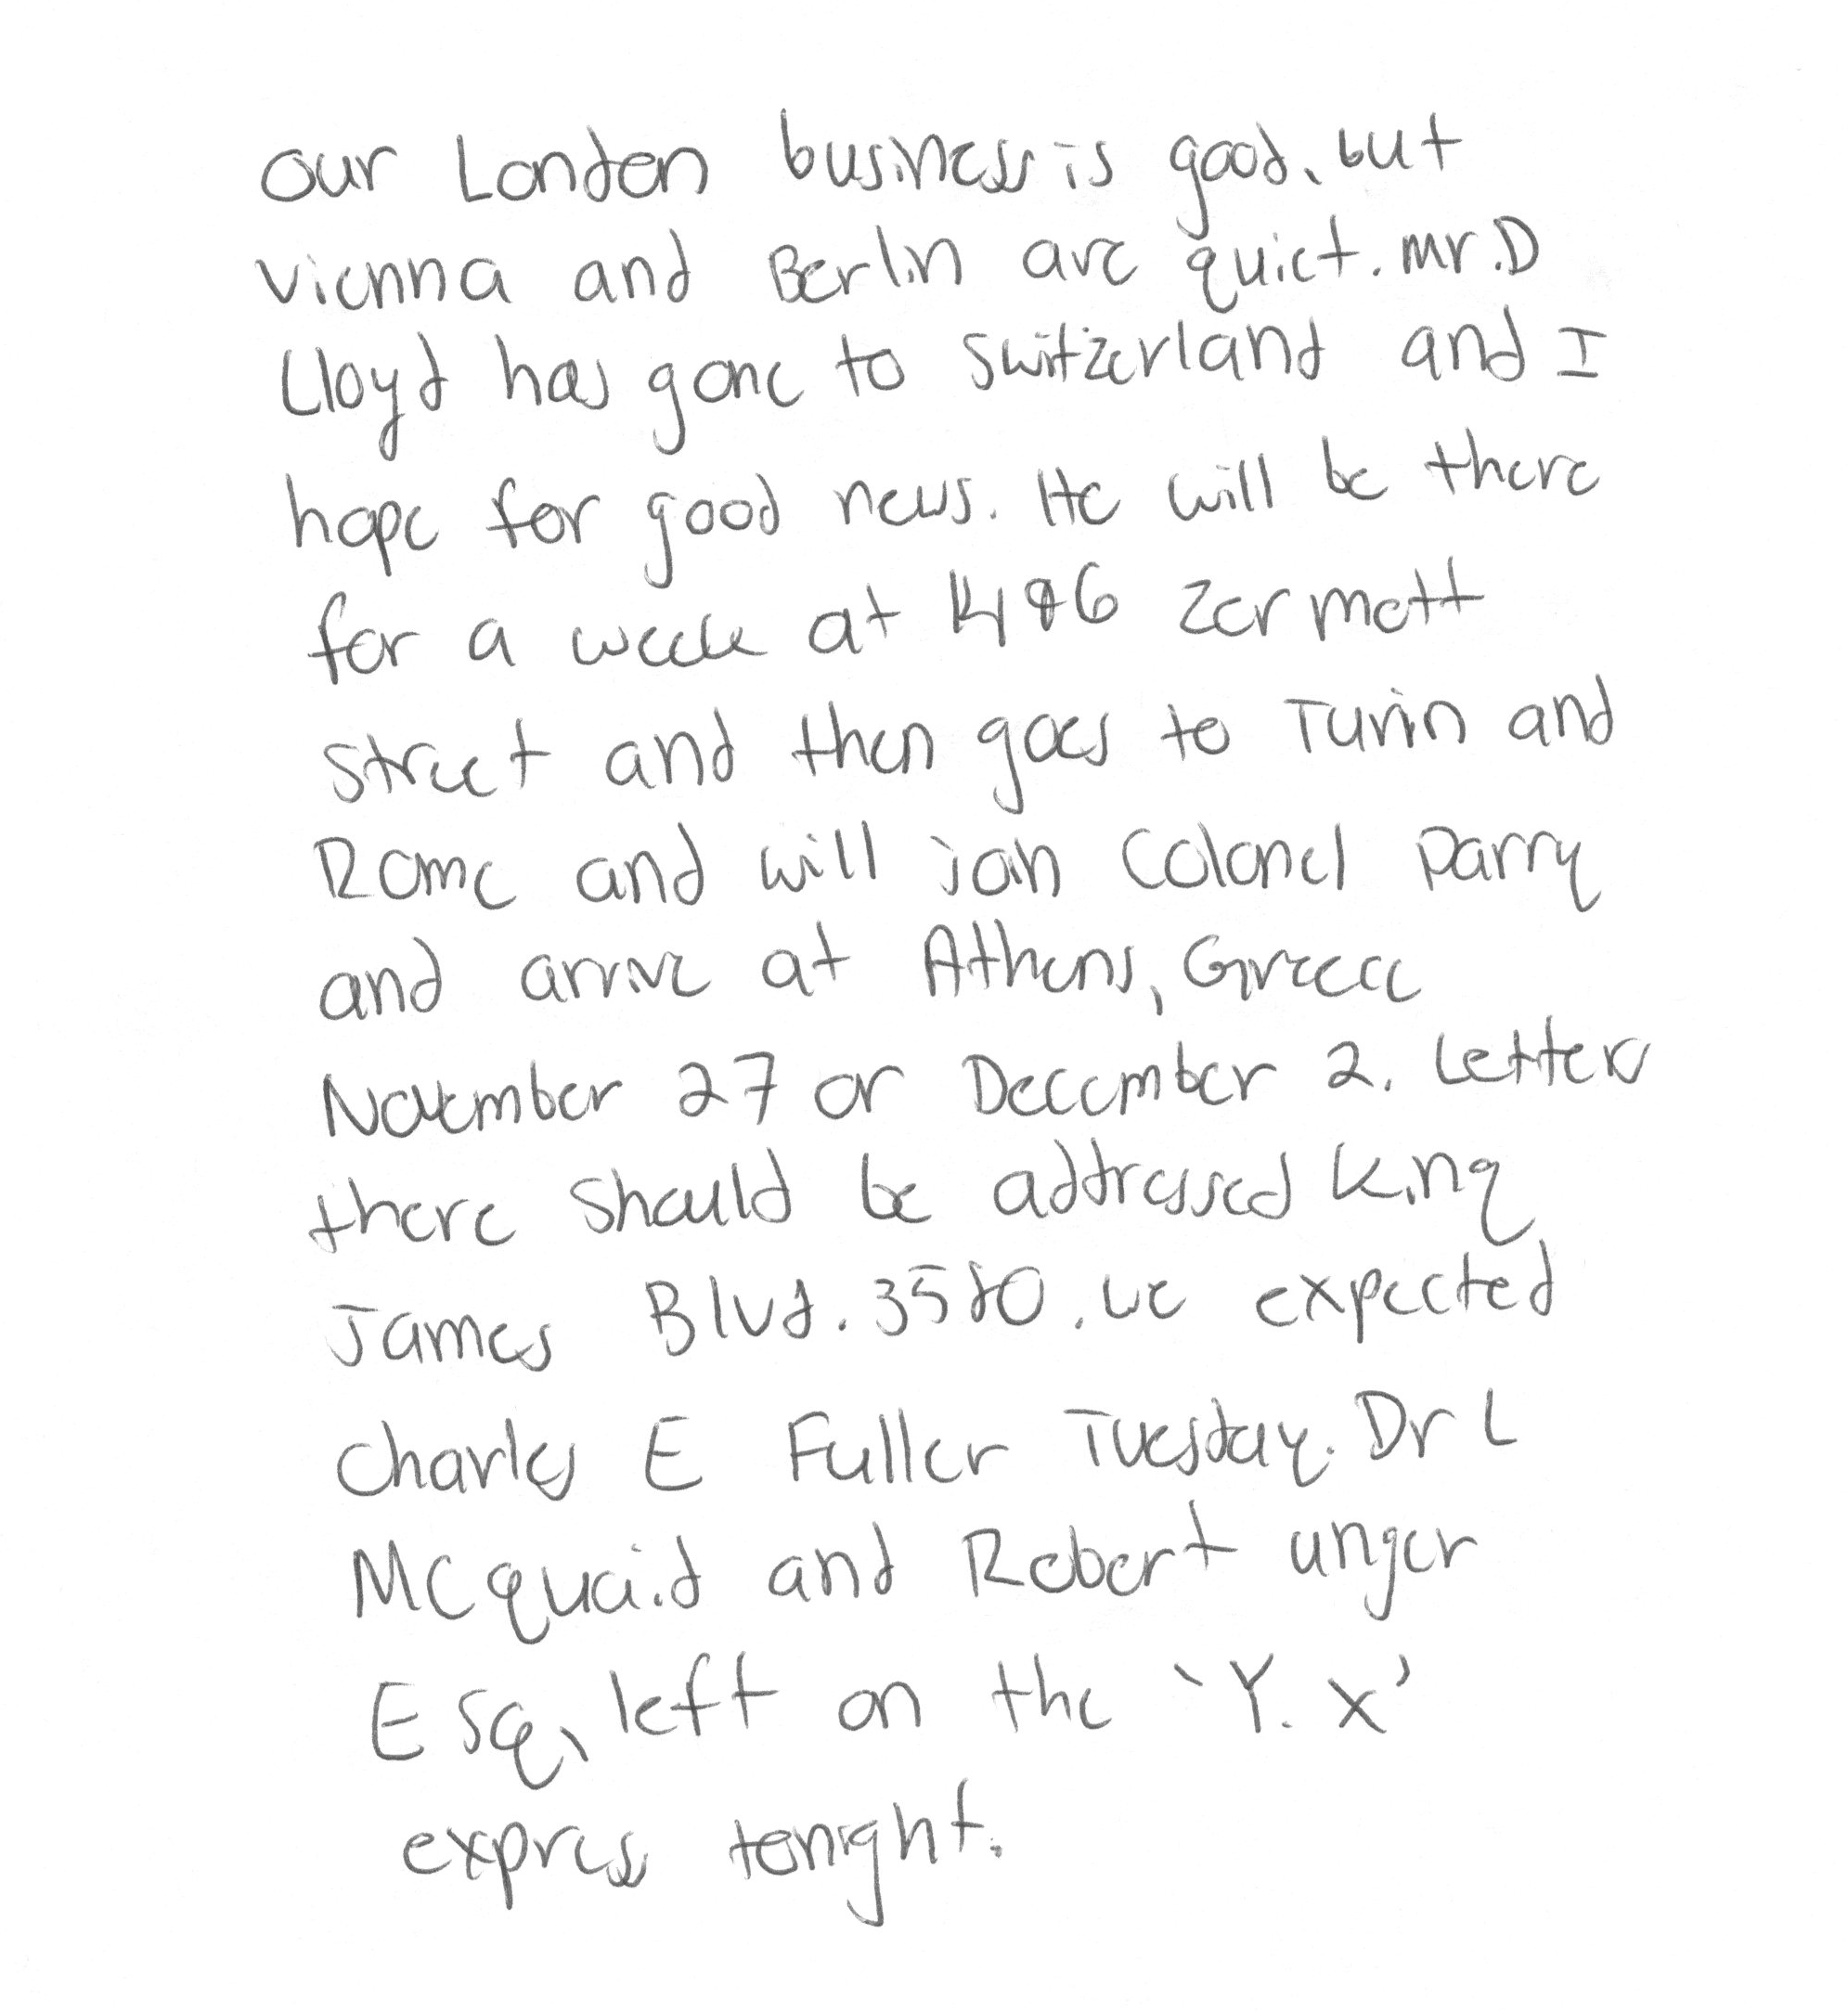 our London business is good, but
vienna and Berlin are quiet. mr. D
Lloyd has gone to switzerland and I
hope for good news. He will be there
for a week at 1496 zermott
street and then goes to Turin and
Rome and will join Colonel parry
and arrive at Athens, Greece
November 27 or December 2. Letters
there should be addressed King
James Blvd. 3580. we expected
charles E Fuller Tuesday. Dr L
McQuaid and Robert unger
Esq, left on the 'Y. X'
express tonight.